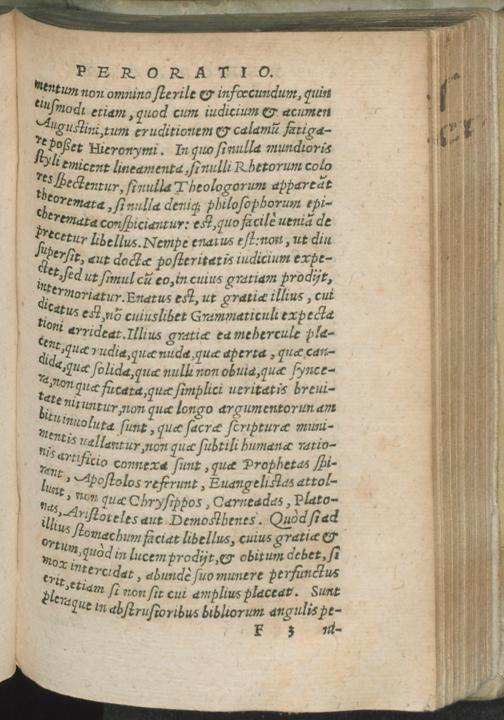 PERORATIO.
mentum non omnino sterile & infœcundum, quin
eiusmodi etiam, quod cum iudicium & acumen
Augustini, tum eruditionem & calamū fatiga-
re posset Hieronymi. In quo si nulla mundioris
styli emicent lineamenta, si nulli Rhetorum colo
res spectentur, si nulla Theologorum appareāt
theoremata, si nulla deniq; philosophorum epi-
cheremata conspiciantur: est, quo facilè veniā de
precetur libellus. Nempe enatus est: non, ut diu
supersit, aut doctæ posteritatis iudicium expe-
ctet, sed ut simul cū eo, in cuius gratiam prodijt,
intermoriatur. Enatus est, ut gratiæ illius, cui
dicatus est, nō cuiuslibet Grammaticuli expecta
tioni arrideat. Illius gratiæ ea mehercule pla-
cent, quæ rudia, quæ nuda, quæ aperta, quæ can-
dida, quæ solida, quæ nulli non obuia, quæ synce-
ra, non quæ fucata, quæ simplici veritatis breui-
tate nituntur, non quæ longo argumentorun am
bitu inuoluta sunt, quæ sacræ scripturæ muni-
mentis uallantur, non quæ subtili humanæ ratio-
nis artificio connexa sunt, quæ Prophetas spi-
rant, Apostolos referunt, Euangelistas attol-
lunt, non quæ Chrysippos, Carneadas, Plato-
nas, Aristoteles aut Demosthenes. Quòd si ad
illius stomachum faciat libellus, cuius gratiæ &
ortum, quòd in lucem prodijt, & obitum debet, si
mox intercidat, abundè suo munere perfunctus
erit, etiam si non sit cui amplius placeat. Sunt
pleraque in abstrusioribus bibliorum angulis pe-
F 3